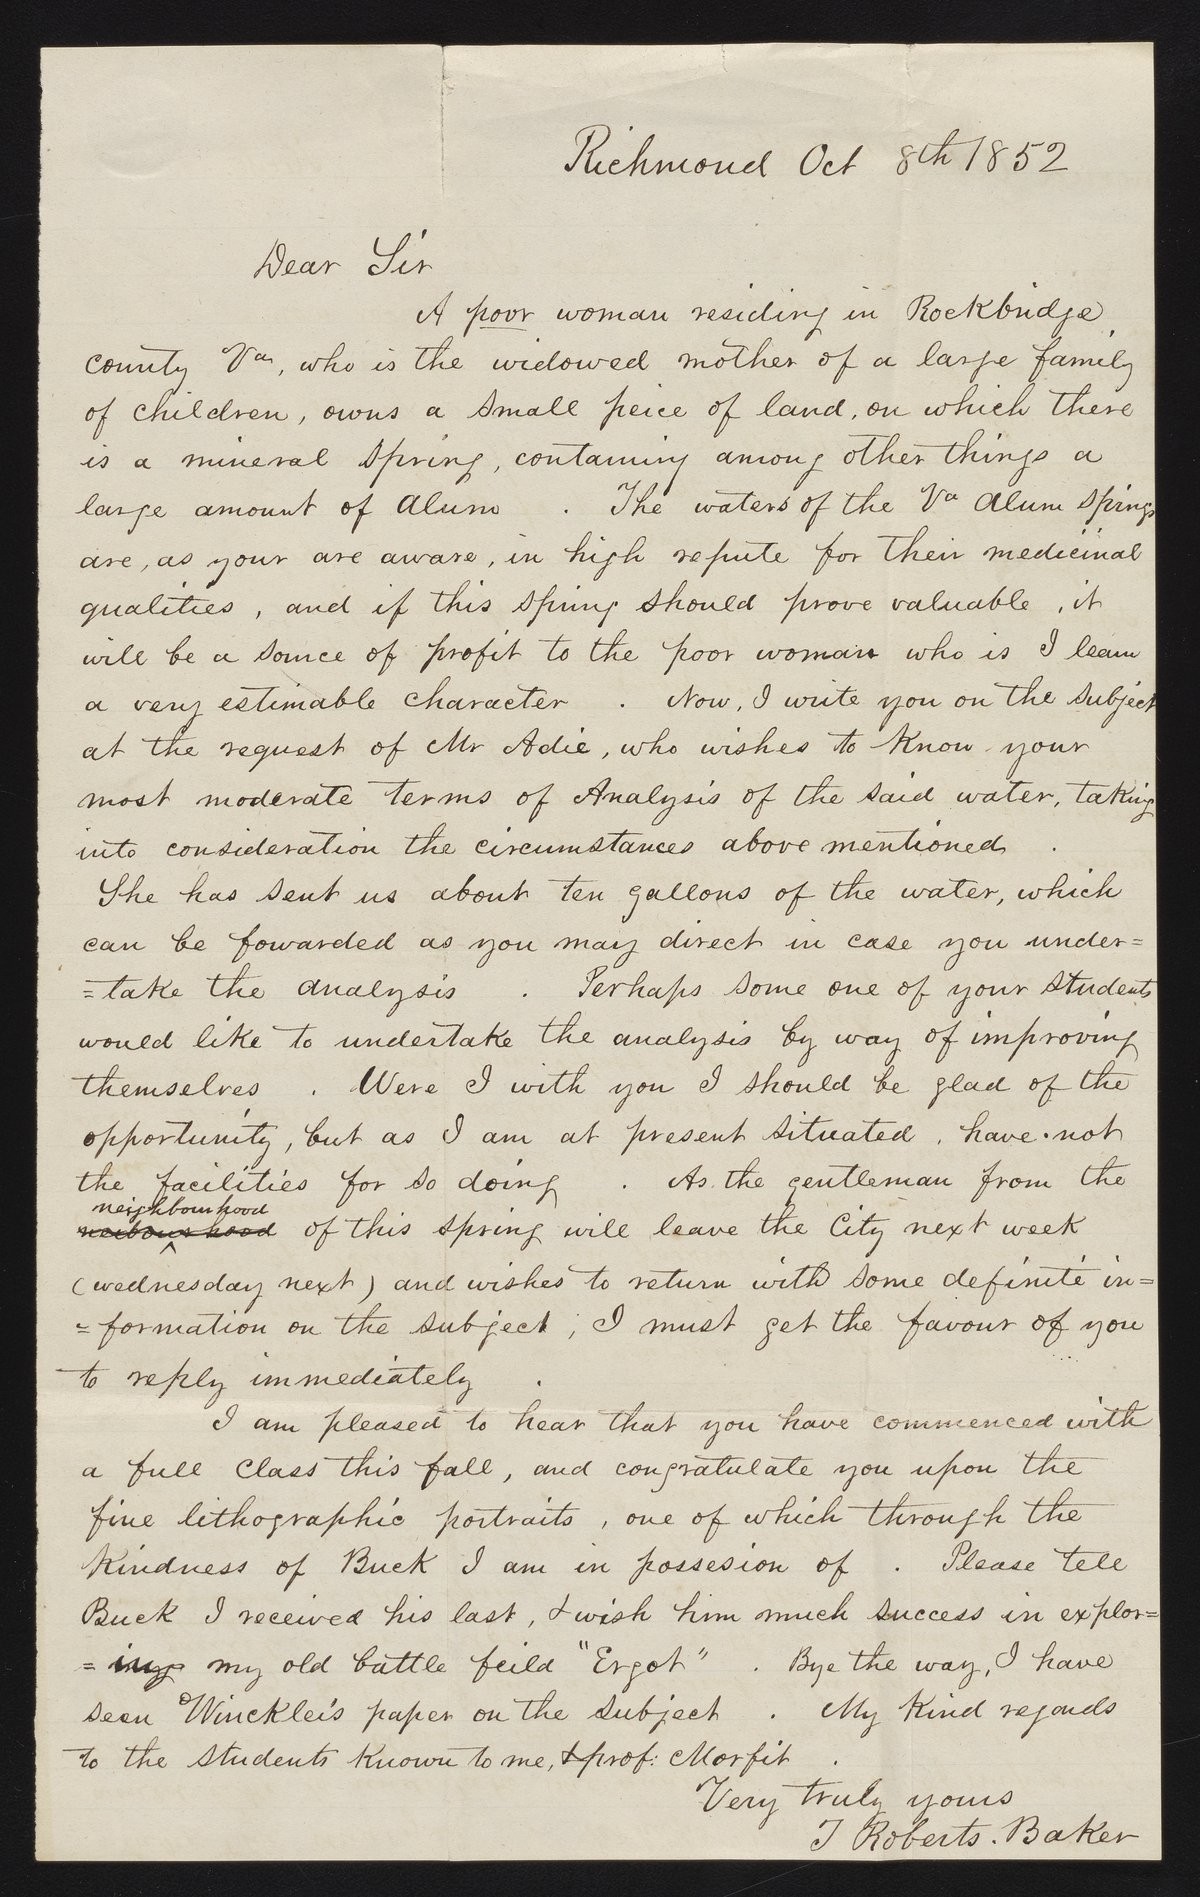 Richmond Oct 8th 1852
Dear Sir
A poor woman residing in Rockbridge
county Va, who is the widowed mother of a large family
of children, owns a small peice of land, on which there
is a mineral spring, containing among other things a
large amount of Alum . The waters of the Va Alum Springs
are, as your are aware, in high repute for their medicinal
qualities, and if this spring should prove valuable, it
will be a source of profit to the poor woman who is I learn
a very estimable character . Now, I write you on the subject
at the request of Mr Adie, who wishes to know your
most moderate terms of Analysis of the said water, taking
into consideration the circumstances above mentioned .
She has sent us about ten gallons of the water, which
can be fowarded as you may direct in case you under=
=take the analysis . Perhaps some one of your students
would like to undertake the analysis by way of improving
themselves . Were I with you I should be glad of the
opportunity, but as I am at present situated, have not
the facilities for so doing . As the gentleman from the
neighbourhood
neibourhood of this spring will leave the City next week
(wednesday next) and wishes to return with some definite in=
=formation on the subject, I must get the favour of you
to reply immediately .
I am pleased to hear that you have commenced with
a full Class this fall, and congratulate you upon the
fine lithographic portraits, one of which through the
kindness of Buck I am in possesion of . Please tell
Buck I received his last, & wish him much success in explor=
=ing my old battle feild "Ergot" . Bye the way, I have
seen Winckler's paper on the subject . My kind regards
to the students known to me, & prof: Morfit .
Very truly yours
T Roberts. Baker